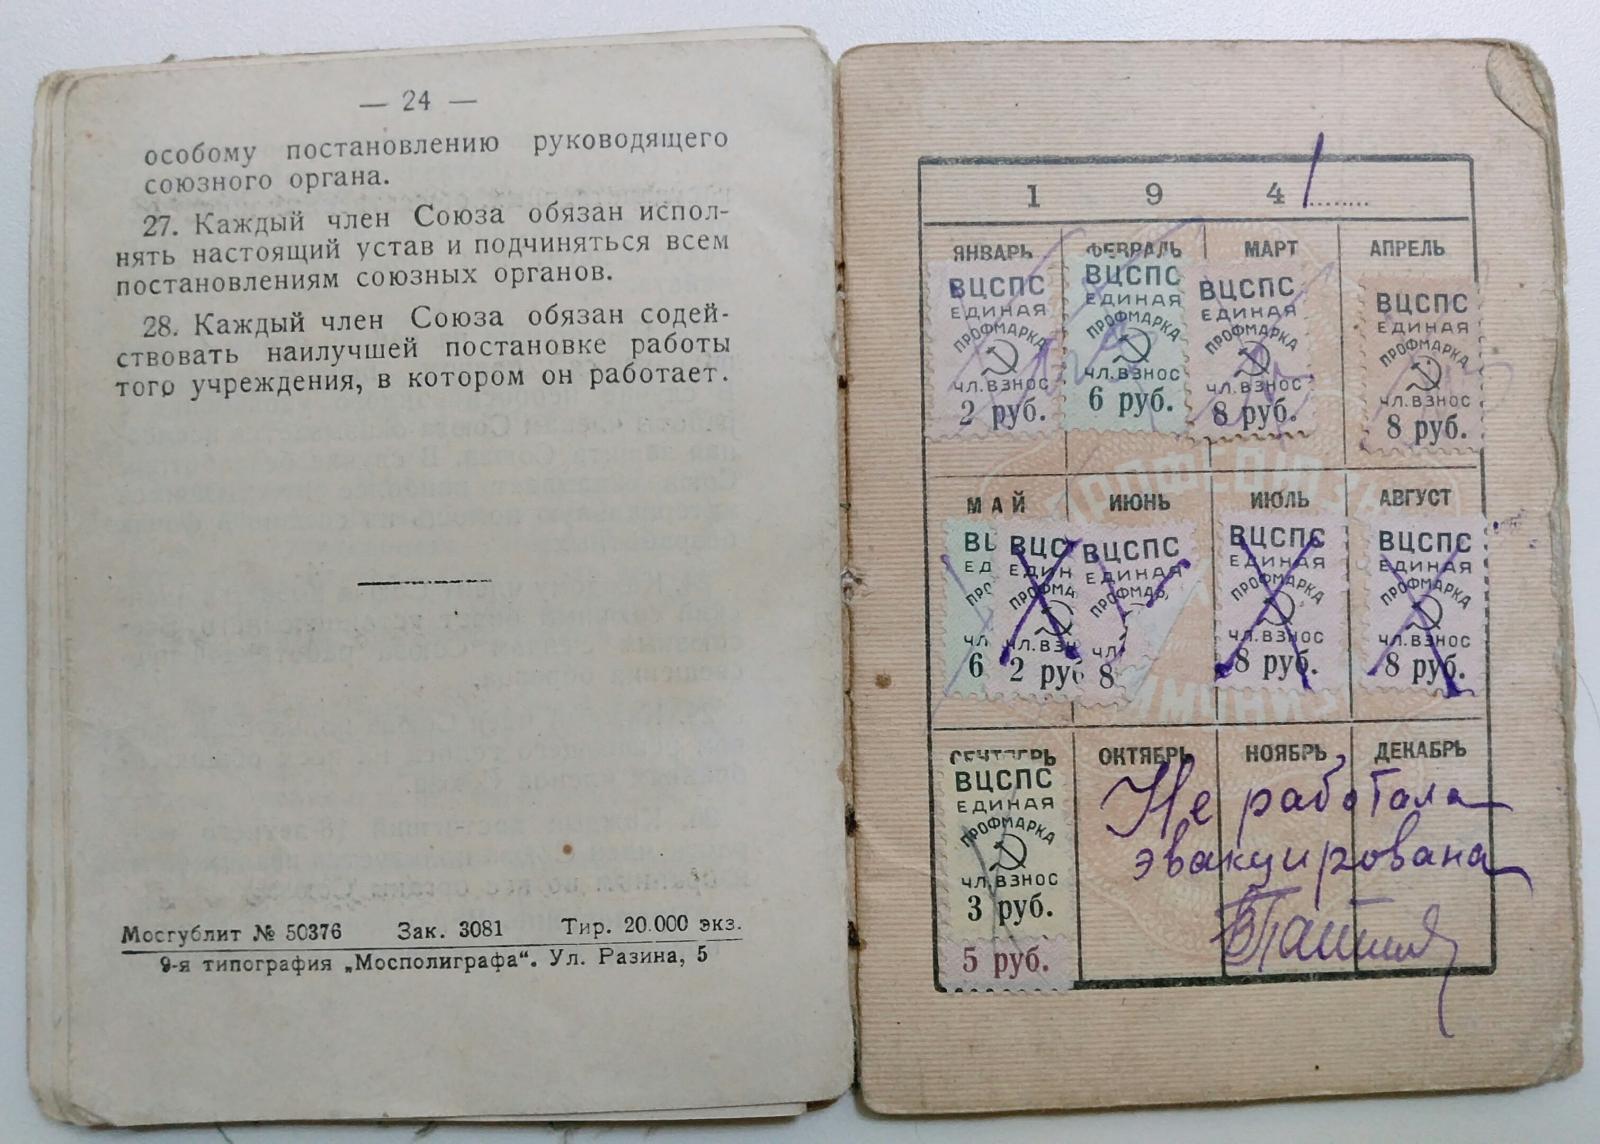 — 24 —
особому постановлению руководящего
союзного органа.
27. Каждый член Союза обязан испол-
нять настоящий устав и подчиняться всем
постановлениям союзных органов.
28. Каждый член Союза обязан содей-
ствовать наилучшей постановке работы
того учреждения, в котором он работает.
Мосгублит № 50376 Зак. 3081 Тир. 20.000 экз.
9-я типография „Мосполиграфа“. Ул. Разина, 5
1 9 4 1
ЯНВАРЬ ФЕВРАЛЬ МАРТ АПРЕЛЬ
ВЦСПС ВЦСПС ВЦСПС ВЦСПС
ЕДИНАЯ ЕДИНАЯ ЕДИНАЯ ЕДИНАЯ
ПРОФМАРКА ПРОФМАРКА ПРОФМАРКА ПРОФМАРКА
ЧЛ.ВЗНОС ЧЛ.ВЗНОС ЧЛ.ВЗНОС ЧЛ.ВЗНОС
2 руб. 6 руб. 8 руб. 8 руб.
МАЙ ИЮНЬ ИЮЛЬ АВГУСТ
ВЦ ВЦС ВЦСПС ВЦСПС ВЦСПС
ЕД ЕДИН ЕДИНАЯ ЕДИНАЯ ЕДИНАЯ
ПРО ПРОФМА ПРОФМАР ПРОФМАРКА ПРОФМАРКА
ЧЛ. ЧЛ.ВЗН ЧЛ ЧЛ.ВЗНОС ЧЛ.ВЗНОС
6 2 руб 8 8 руб. 8 руб.
СЕНТЯБРЬ ОКТЯБРЬ НОЯБРЬ ДЕКАБРЬ
ВЦСПС
ЕДИНАЯ
ПРОФМАРКА
ЧЛ.ВЗНОС
3 руб.
5 руб.
Не работала
эвакуирована